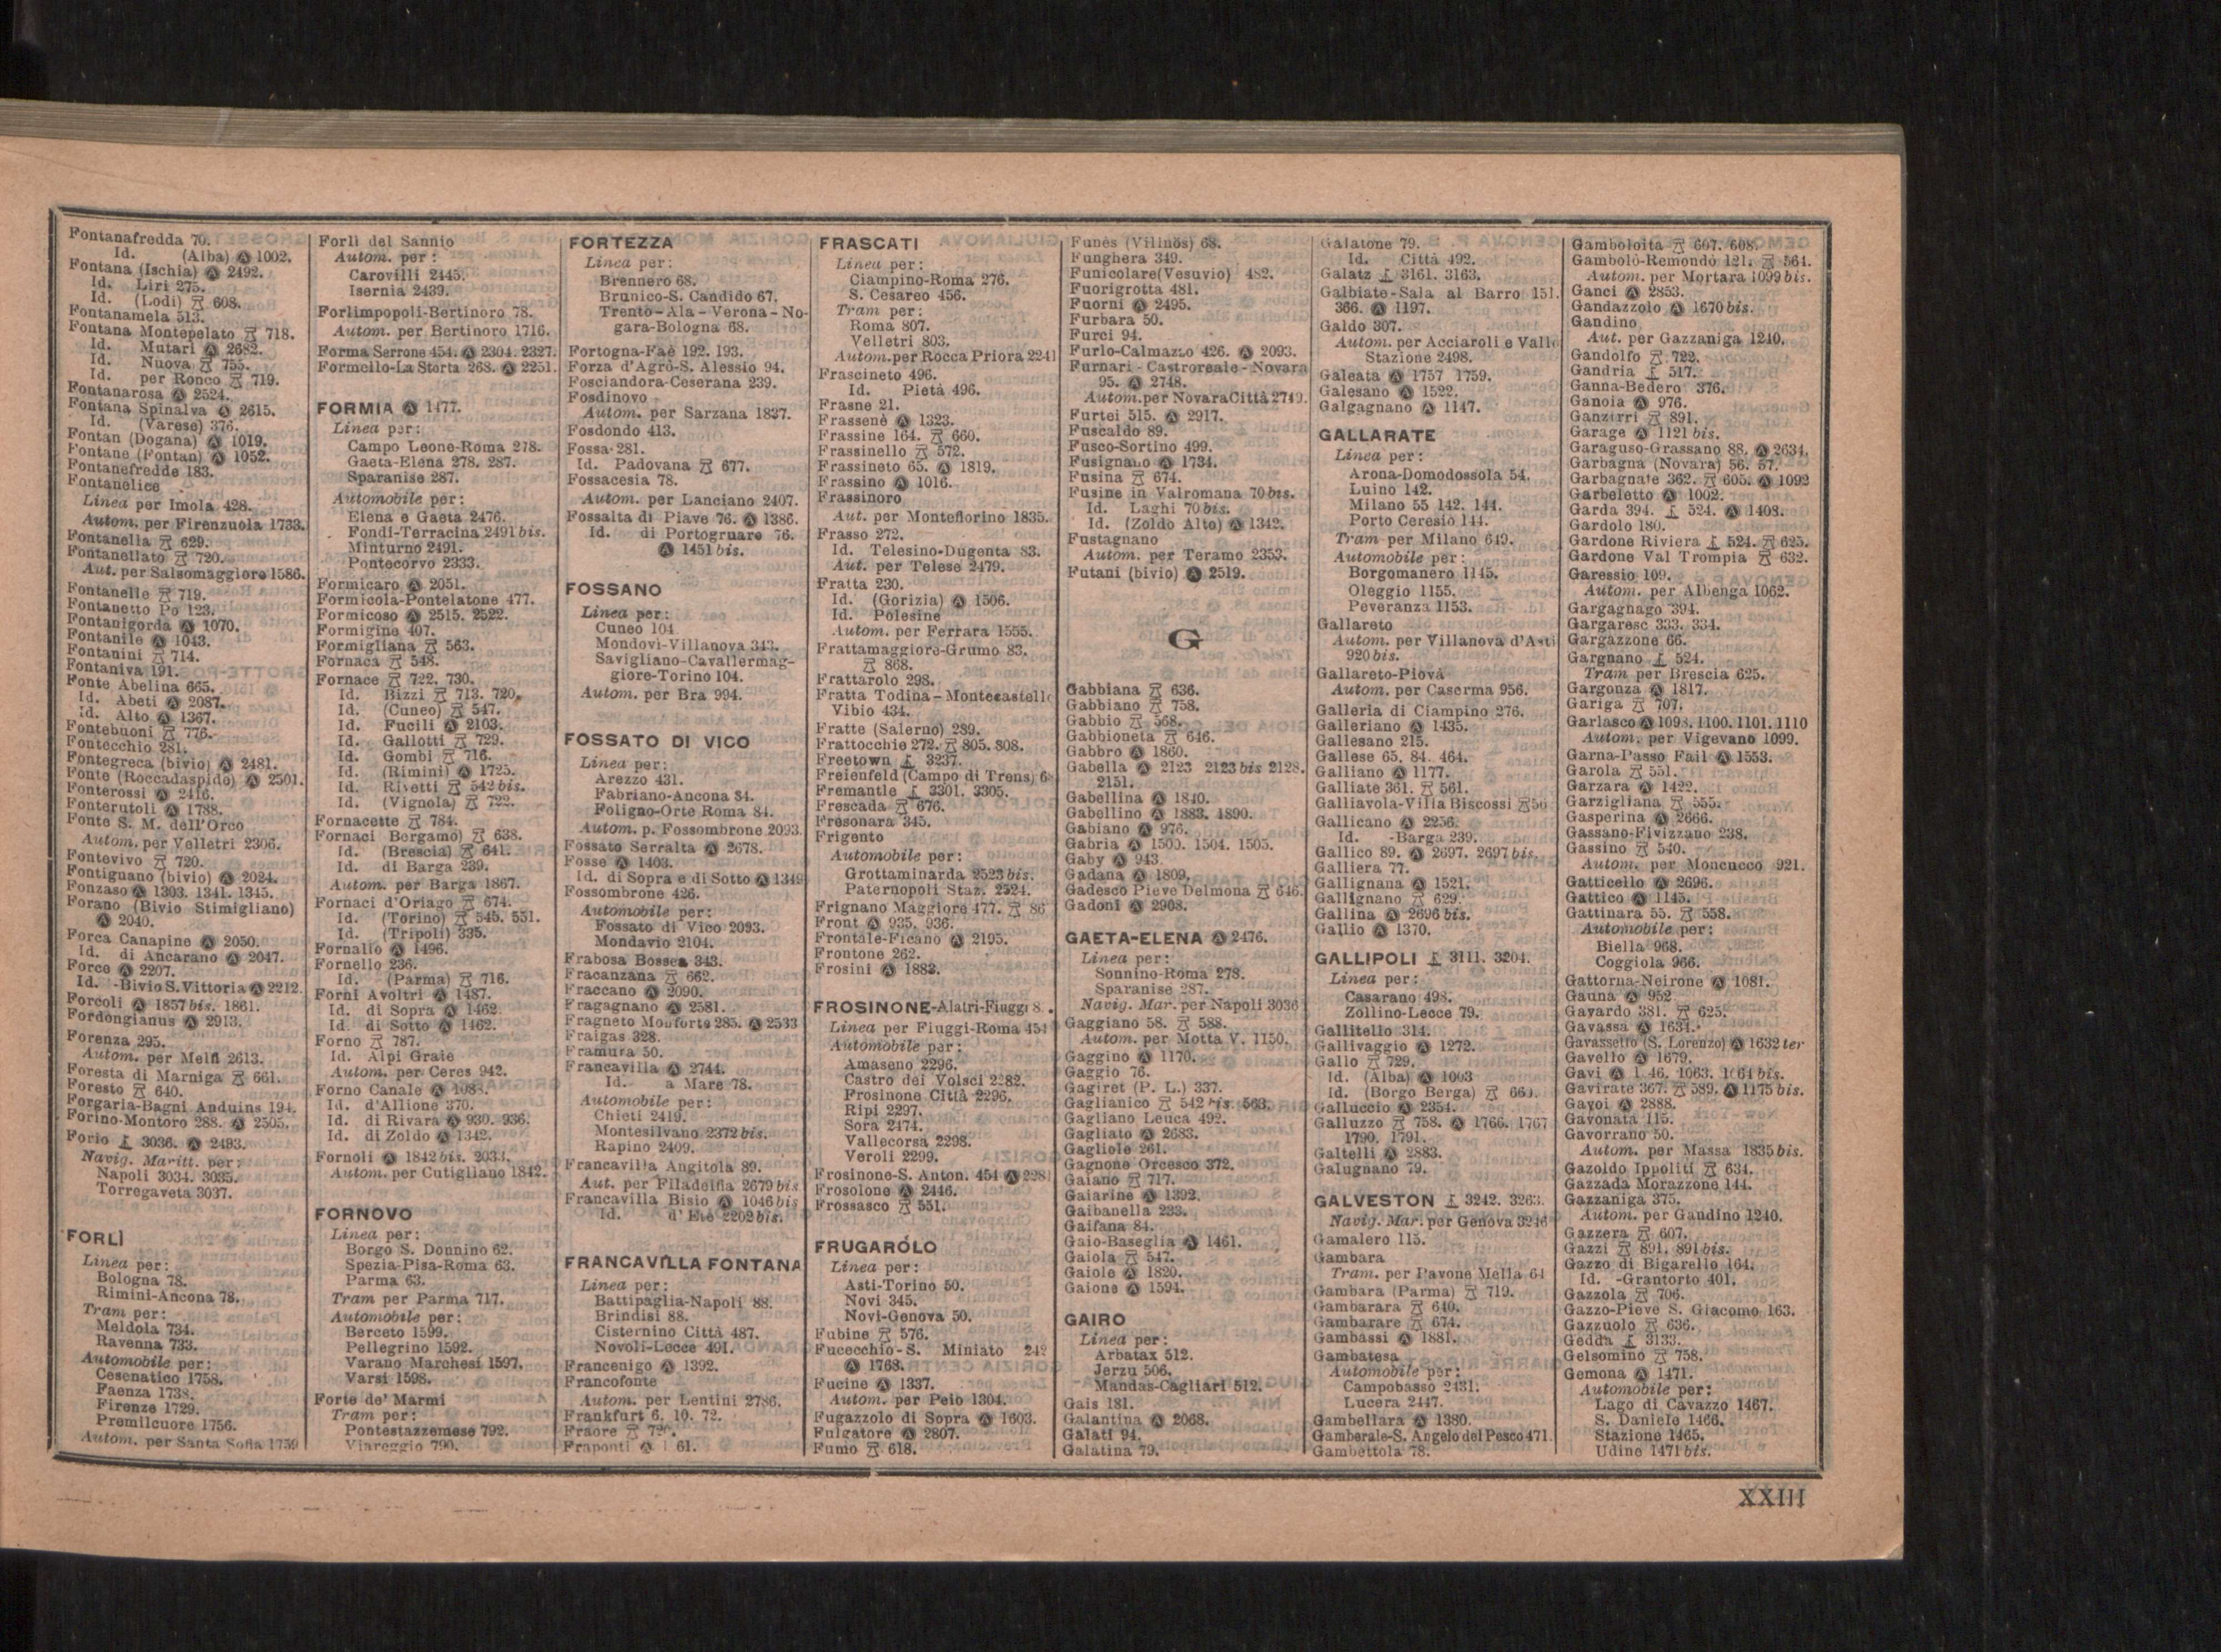 Fontanafredda 70.
Id. (Alba) Ⓐ 1002.
Fontana (Ischia) Ⓐ 2492.
Id. Liri 275.
Id. (Lodi) 608.
Fontanamela 513.
Fontana Montepelato 718.
Id. Mutari Ⓐ 2682.
Id. Nuova 755.
Id. per Ronco 719.
Fontanarosa Ⓐ 2524.
Fontana Spinalva Ⓐ 2615.
Id. (Varese) 376.
Fontan (Dogana) Ⓐ 1019.
Fontane (Fontan) Ⓐ 1052.
Fontanefredde 183.
Fontanelice
Linea per Imola 428.
Autom. per Firenzuola 1733.
Fontanella 629.
Fontanellato 720.
Aut. per Salsomaggiore 1586.
Fontanelle 719.
Fontanetto Po 123.
Fontanigorda Ⓐ 1070.
Fontanile Ⓐ 1043.
Fontanini 714.
Fontaniva 191.
Fonte Abelina 665.
Id. Abeti Ⓐ 2087.
Id. Alto Ⓐ 1367.
Fontebuoni 776.
Fontecchio 281.
Fontegreca (bivio) Ⓐ 2481.
Fonte (Roccadaspide) Ⓐ 2501.
Fonterossi Ⓐ 2416.
Fonterutoli Ⓐ 1788.
Fonte S. M. dell'Orco
Autom. per Velletri 2306.
Fontevivo 720.
Fontignano (bivio) Ⓐ 2024.
Fonzaso Ⓐ 1303. 1341. 1345.
Forano (Bivio Stimigliano)
Ⓐ 2040.
Forca Canapine Ⓐ 2050.
Id. di Ancarano Ⓐ 2047.
Force Ⓐ 2207.
Id. -Bivio S. Vittoria Ⓐ 2212.
Forcoli Ⓐ 1857 bis. 1861.
Fordongianus Ⓐ 2913.
Forenza 295.
Autom. per Melfi 2613.
Foresta di Marniga 661.
Foresto 640.
Forgaria-Bagni Anduins 194.
Forino-Montoro 288. Ⓐ 2505.
Forio 3036. Ⓐ 2493.
Navig. Maritt. per:
Napoli 3034. 3035.
Torregaveta 3037.
FORLÌ
Linea per:
Bologna 78.
Rimini-Ancona 78.
Tram per:
Meldola 734.
Ravenna 733.
Automobile per:
Cesenatico 1758.
Faenza 1738.
Firenze 1729.
Premilcuore 1756.
Autom. per Santa Sofia 1759
Forlì del Sannio
Autom. per:
Carovilli 2445.
Isernia 2439.
Forlimpopoli-Bertinoro 78.
Autom. per Bertinoro 1716.
Forma Serrone 454. Ⓐ 2304. 2327.
Formello-La Storta 268. Ⓐ 2251.
FORMIA Ⓐ 1477.
Linea per:
Campo Leone-Roma 278.
Gaeta-Elena 278. 287.
Sparanise 287.
Automobile per:
Elena e Gaeta 2476.
Fondi-Terracina 2491 bis.
Minturno 2491.
Pontecorvo 2333.
Formicaro Ⓐ 2051.
Formicola-Pontelatone 477.
Formicoso Ⓐ 2515. 2522.
Formigine 407.
Formigliana 563.
Fornaca 548.
Fornace 722. 730.
Id. Bizzi 713. 720.
Id. (Cuneo) 547.
Id. Fucili Ⓐ 2103.
Id. Gallotti 729.
Id. Gombi 716.
Id. (Rimini) Ⓐ 1725.
Id. Rivetti 542 bis.
Id. (Vignola) 722.
Fornacette 784.
Fornaci Bergamo) 638.
Id. (Brescia) 641.
Id. di Barga 239.
Autom. per Barga 1867.
Fornaci d'Oriago 674.
Id. (Torino) 545. 551.
Id. (Tripoli) 335.
Fornalio Ⓐ 1496.
Fornello 236.
Id. (Parma) 716.
Forni Avoltri Ⓐ 1487.
Id. di Sopra Ⓐ 1462.
Id. di Sotto Ⓐ 1462.
Forno 787.
Id. Alpi Graie
Autom. per Ceres 942.
Forno Canale Ⓐ
Id. d'Allione 370.
Id. di Rivara Ⓐ 930. 936.
Id. di Zoldo Ⓐ 1342.
Fornoli Ⓐ 1842 bis.
Autom. per Cutigliano 1842.
FORNOVO
Linea per:
Borgo S. Donnino 62.
Spezia-Pisa-Roma 63.
Parma 63.
Tram per Parma 717.
Automobile per:
Berceto 1599.
Pellegrino 1592.
Varano Marchesi 1597.
Varsi 1598.
Forte de' Marmi
Tram per:
Pontestazzemese 792.
Viareggio 790.
FORTEZZA
Linea per:
Brennero 68.
Brunico-S. Candido 67.
Trento-Ala-Verona-No-
gara-Bologna 68.
Fortogna-Faè 192. 193.
Forza d'Agrò-S. Alessio 94.
Fosciandora-Ceserana 239.
Fosdinovo
Autom. per Sarzana 1827.
Fosdondo 413.
Fossa 281.
Id. Padovana 677.
Fossacesia 78.
Autom. per Lanciano 2407.
Fossalta di Piave 76. Ⓐ 1386.
Id. di Portogruare 76.
Ⓐ 1451 bis.
FOSSANO
Linea per:
Cuneo 104
Mondovì-Villanova 343.
Savigliano-Cavallermag-
giore-Torino 104.
Autom. per Bra 994.
FOSSATO DI VICO
Linea per:
Arezzo 431.
Fabriano-Ancona 84.
Foligno-Orte Roma 84.
Autom. p. Fossombrone 2093.
Fossato Serralta Ⓐ 2678.
Fosse Ⓐ 1403.
Id. di Sopra e di Sotto Ⓐ 1349
Fossombrone 426.
Automobile per:
Fossato di Vico 2093.
Mondavio 2104.
Frabosa Bossea 343.
Fracanzana 662.
Fraccano Ⓐ 2090.
Fragagnano Ⓐ 2581.
Fragneto Monforte 285. Ⓐ 2533
Fraigas 328.
Framura 50.
Francavilla Ⓐ 2744.
Id. a Mare 78.
Automobile per:
Chieti 2419.
Montesilvano 2372 bis.
Rapino 2409.
Francavilla Angitola 89.
Aut. per Filadelfia 2679 bis
Francavilla Bisio Ⓐ 1046 bis
Id. d'Ete 2202 bis.
FRANCAVILLA FONTANA
Linea per:
Battipaglia-Napoli 88.
Brindisi 88.
Cisternino Città 487.
Novoli-Lecce 491.
Francenigo Ⓐ 1392.
Francofonte
Autom. per Lentini 2786.
Frankfurt 6. 10. 72.
Fraore
Fraponti Ⓐ
FRASCATI
Linea per:
Ciampino-Roma 276.
S. Cesareo 456.
Tram per:
Roma 807.
Velletri 803.
Autom. per Rocca Priora 2241
Frascineto 496.
Id. Pietà 496.
Frasne 21.
Frassenè Ⓐ 1323.
Frassine 164. 660.
Frassinello 572.
Frassineto 65. Ⓐ 1819.
Frassino Ⓐ 1016.
Frassinoro
Aut. per Montefiorino 1835.
Frasso 272.
Id. Telesino-Dugenta 83.
Aut. per Telese 2479.
Fratta 230.
Id. (Gorizia) Ⓐ 1506.
Id. Polesine
Autom. per Ferrara 1555.
Frattamaggiore-Grumo 83.
868.
Frattarolo 298.
Fratta Todina-Montecastello
Vibio 434.
Fratte (Salerno) 289.
Frattocchie 272. 805. 808.
Freetown 3237.
Freienfeld (Campo di Trens) 68
Fremantle 3301. 3305.
Frescada 676.
Fresonara 345.
Frigento
Automobile per:
Grottaminarda 2523 bis.
Paternopoli Staz. 2524.
Frignano Maggiore 477. 86
Front Ⓐ 935. 936.
Frontale-Ficano Ⓐ 2195.
Frontone 262.
Frosini Ⓐ 1883.
FROSINONE-Alatri-Fiuggi 8 .
Linea per Fiuggi-Roma 454
Automobile per:
Amaseno 2296.
Castro dei Volsci 2282.
Frosinone Città 2296.
Ripi 2297.
Sora 2474.
Vallecorsa 2298.
Veroli 2299.
Frosinone-S. Anton. 454 Ⓐ 2281
Frosolone Ⓐ 2446.
Frossasco 551.
FRUGAROLO
Linea per:
Asti-Torino 50.
Novi 345.
Novi-Genova 50.
Fubine 576.
Fucecchio-S. Miniato 242
Ⓐ 1768.
Fucine Ⓐ 1337.
Autom. per Peio 1304.
Fugazzolo di Sopra Ⓐ 1603.
Fulgatore Ⓐ 2807.
Fumo 618.
Funès (Villnös) 68.
Funghera 349.
Funicolare (Vesuvio) 482.
Fuorigrotta 481.
Fuorni Ⓐ 2495.
Furbara 50.
Furci 94.
Furlo-Calmazzo 426. Ⓐ 2093.
Furnari-Castroreale-Novara
95. Ⓐ 2748.
Autom. per Novara Città 2749.
Furtei 515. Ⓐ 2917.
Fuscaldo 89.
Fusco-Sortino 499.
Fusignano Ⓐ 1734.
Fusina 674.
Fusine in Valromana 70 bis.
Id. Laghi 70 bis.
Id. (Zoldo Alto) Ⓐ 1342.
Fustagnano
Autom. per Teramo 2353.
Futani (bivio) Ⓐ 2519.
G
Gabbiana 636.
Gabbiano 758.
Gabbio 568.
Gabbioneta 646.
Gabbro Ⓐ 1860.
Gabella Ⓐ 2123 2123 bis 2128.
2151.
Gabellina Ⓐ 1840.
Gabellino Ⓐ 1883. 1890.
Gabiano Ⓐ 976.
Gabria Ⓐ 1500. 1504. 1505.
Gaby Ⓐ 943.
Gadana Ⓐ 1809.
Gadesco Pieve Delmona 646.
Gadoni Ⓐ 2908.
GAETA-ELENA Ⓐ 2476.
Linea per:
Sonnino-Roma 278.
Sparanise 287.
Navig. Mar. per Napoli 3036
Gaggiano 58. 588.
Autom. per Motta V. 1150.
Gaggino Ⓐ 1170.
Gaggio 76.
Gagiret (P. L.) 337.
Gaglianico 542 bis. 563.
Gagliano Leuca 492.
Gagliato Ⓐ 2683.
Gagliole 261.
Gagnone Orcesco 372.
Gaiano 717.
Gaiarine Ⓐ 1392.
Gaibanella 233.
Gaifana 84.
Gaio-Baseglia Ⓐ 1461.
Gaiola 547.
Gaiole Ⓐ 1820.
Gaione Ⓐ 1594.
GAIRO
Linea per:
Arbatax 512.
Jerzu 506.
Mandas-Cagliari 512.
Gais 181.
Galantina Ⓐ 2068.
Galati 94.
Galatina 79.
Galatone 79.
Id. Città 492.
Galatz 3161. 3163.
Galbiate-Sala al Barro 151.
366. Ⓐ 1197.
Galdo 307.
Autom. per Acciaroli e Vallo
Stazione 2498.
Galeata Ⓐ 1757 1759.
Galesano Ⓐ 1522.
Galgagnano Ⓐ 1147.
GALLARATE
Linea per:
Arona-Domodossola 54.
Luino 142.
Milano 55 142. 144.
Porto Ceresio 144.
Tram per Milano 649.
Automobile per:
Borgomanero 1145.
Oleggio 1155.
Peveranza 1153.
Gallareto
Autom. per Villanova d'Asti
920 bis.
Gallareto-Piovà
Autom. per Caserma 956.
Galleria di Ciampino 276.
Galleriano Ⓐ 1435.
Gallesano 215.
Gallese 65. 84. 464.
Galliano Ⓐ 1177.
Galliate 361. 561.
Galliavola-Villa Biscossi 56
Gallicano Ⓐ 2256.
Id. -Barga 239.
Gallico 89. Ⓐ 2697. 2697 bis.
Galliera 77.
Gallignana Ⓐ 1521.
Gallignano 629.
Gallina Ⓐ 2696 bis.
Gallio Ⓐ 1370.
GALLIPOLI 3111. 3204.
Linea per:
Casarano 498.
Zollino-Lecce 79.
Gallitello 314.
Gallivaggio Ⓐ 1272.
Gallo 729.
Id. (Alba) Ⓐ 1003
Id. (Borgo Berga)
Galluccio Ⓐ 2354.
Galluzzo 758. Ⓐ 1766. 1767
1790. 1791.
Galtelli Ⓐ 2883.
Galugnano 79.
GALVESTON 3242. 3263.
Navig. Mar. per Genova 3246
Gamalero 115.
Gambara
Tram. per Pavone Mella 64
Gambara (Parma) 719.
Gambarara 640.
Gambarare 674.
Gambassi Ⓐ 1881.
Gambatesa
Automobile per:
Campobasso 2431.
Lucera 2447.
Gambellara Ⓐ 1380.
Gamberale-S. Angelo del Pesco 471.
Gambettola 78.
Gamboloita 607. 608.
Gambolò-Remondò 121. 564.
Autom. per Mortara 1099 bis.
Ganci Ⓐ 2853.
Gandazzolo Ⓐ 1670 bis.
Gandino
Aut. per Gazzaniga 1240.
Gandolfo 722.
Gandria 517.
Ganna-Bedero 376.
Ganoia Ⓐ 976.
Ganzirri 891.
Garage Ⓐ 1121 bis.
Garaguso-Grassano 88. Ⓐ 2634.
Garbagna (Novara) 56. 57.
Garbagnate 362. 605. Ⓐ 1092
Garbeletto Ⓐ 1002.
Garda 394. 524. Ⓐ 1408.
Gardolo 180.
Gardone Riviera 524. 625.
Gardone Val Trompia 632.
Garessio 109.
Autom. per Albenga 1062.
Gargagnago 394.
Gargaresc 333. 334.
Gargazzone 66.
Gargnano 524.
Tram per Brescia 625.
Gargonza Ⓐ 1817.
Gariga 707.
Garlasco Ⓐ 1098. 1100. 1101. 1110
Autom. per Vigevano 1099.
Garna-Passo Fail Ⓐ 1553.
Garola 551.
Garzara Ⓐ 1422.
Garzigliana 555.
Gasperina Ⓐ 2666.
Gassano-Fivizzano 238.
Gassino 540.
Autom. per Moncucco 921.
Gatticello Ⓐ 2696.
Gattico Ⓐ 1145.
Gattinara 55. 558.
Automobile per:
Biella 968.
Coggiola 966.
Gattorna-Neirone Ⓐ 1081.
Gauna Ⓐ 952
Gavardo 381. 625.
Gavassa Ⓐ 1634.
Gavasseto (S. Lorenzo) Ⓐ 1632 ter
Gavello Ⓐ 1679.
Gavi Ⓐ 1063. 1064 bis.
Gavirate 367. 589. Ⓐ 1175 bis.
Gavoi Ⓐ 2888.
Gavonata 115.
Gavorrano 50.
Autom. per Massa 1835 bis.
Gazoldo Ippoliti 634.
Gazzada Morazzone 144.
Gazzaniga 375.
Autom. per Gandino 1240.
Gazzera 607.
Gazzi 891. 891 bis.
Gazzo di Bigarello 164.
Id. -Grantorto 401.
Gazzola 706.
Gazzo-Pieve S. Giacomo 163.
Gazzuolo 636.
Gedda 3133.
Gelsomino 758.
Gemona Ⓐ 1471.
Automobile per:
Lago di Cavazzo 1467.
S. Daniele 1466.
Stazione 1465.
Udine 1471 bis.
XXIII